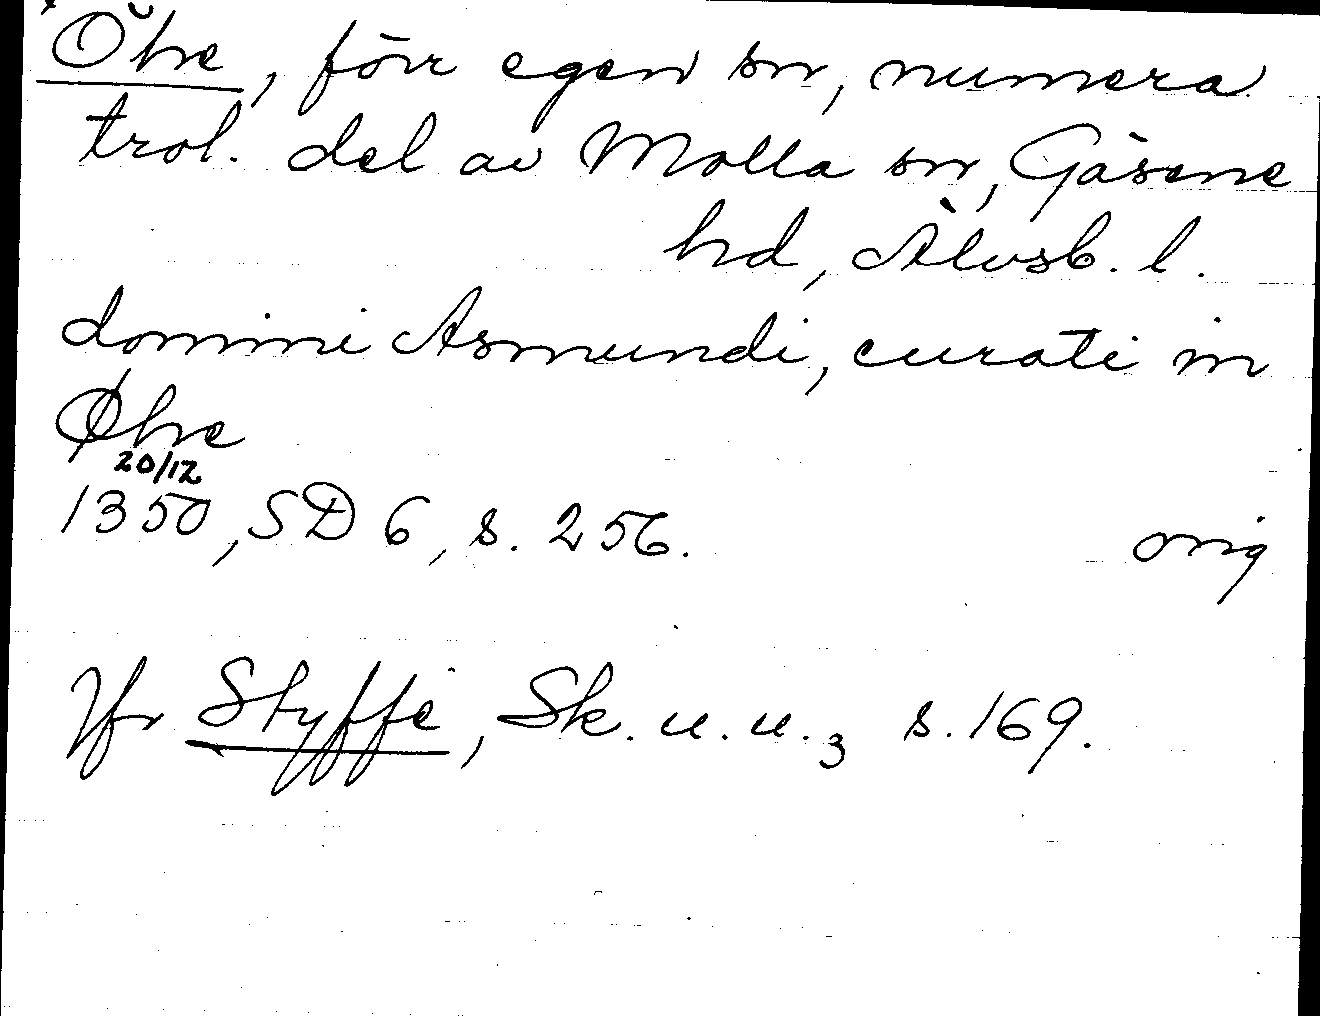 Öhre, förr egen sn, numera
trol. del av Molla sn, Gäsene
hd, Älvsb. l.
domini Asmundi, curati in
Øhre
20/12
1350, SD 6, s. 256. orig
Jfr Styffe, Sk. u. u. 3 s. 169.